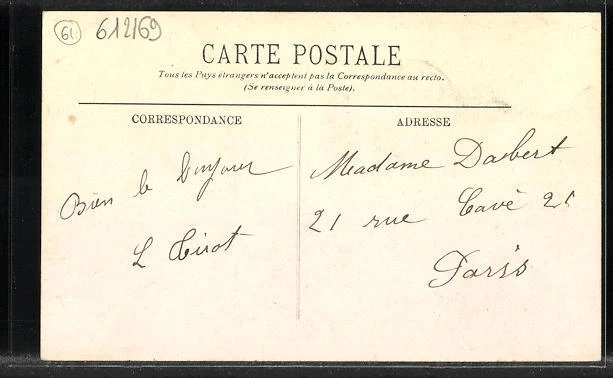 61 612169
CARTE POSTALE
Tous les Pays étrangers n'acceptent pas la Correspondance au recto.
(Se renseigner à la Poste).
CORRESPONDANCE
ADRESSE
Bien le bonjour
L Tirot
Madame Dabert
21 rue Cavé 21
Paris